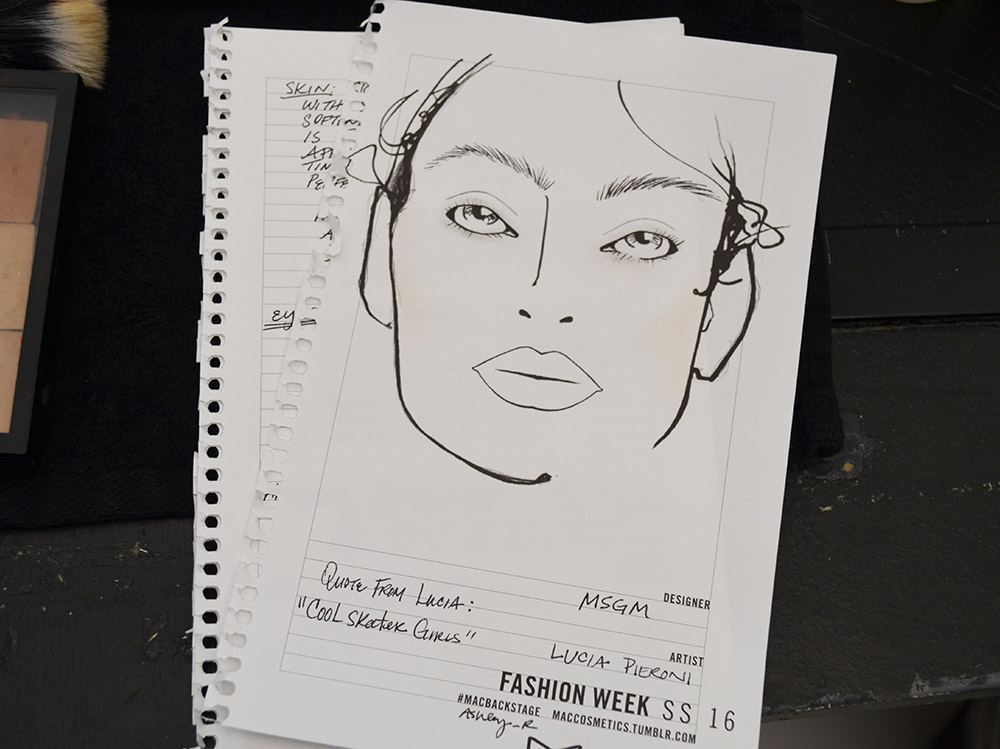 SKIN:
WITH
IS
TIN
A
EY
QUOTE FROM LUCIA:
"COOL Skater GIRLS"
MSGM
DESIGNER
LUCIA PIERONI
ARTIST
FASHION WEEK SS 16
#MACBACKSTAGE MACCOSMETICS.TUMBLR.COM
Ashley_R